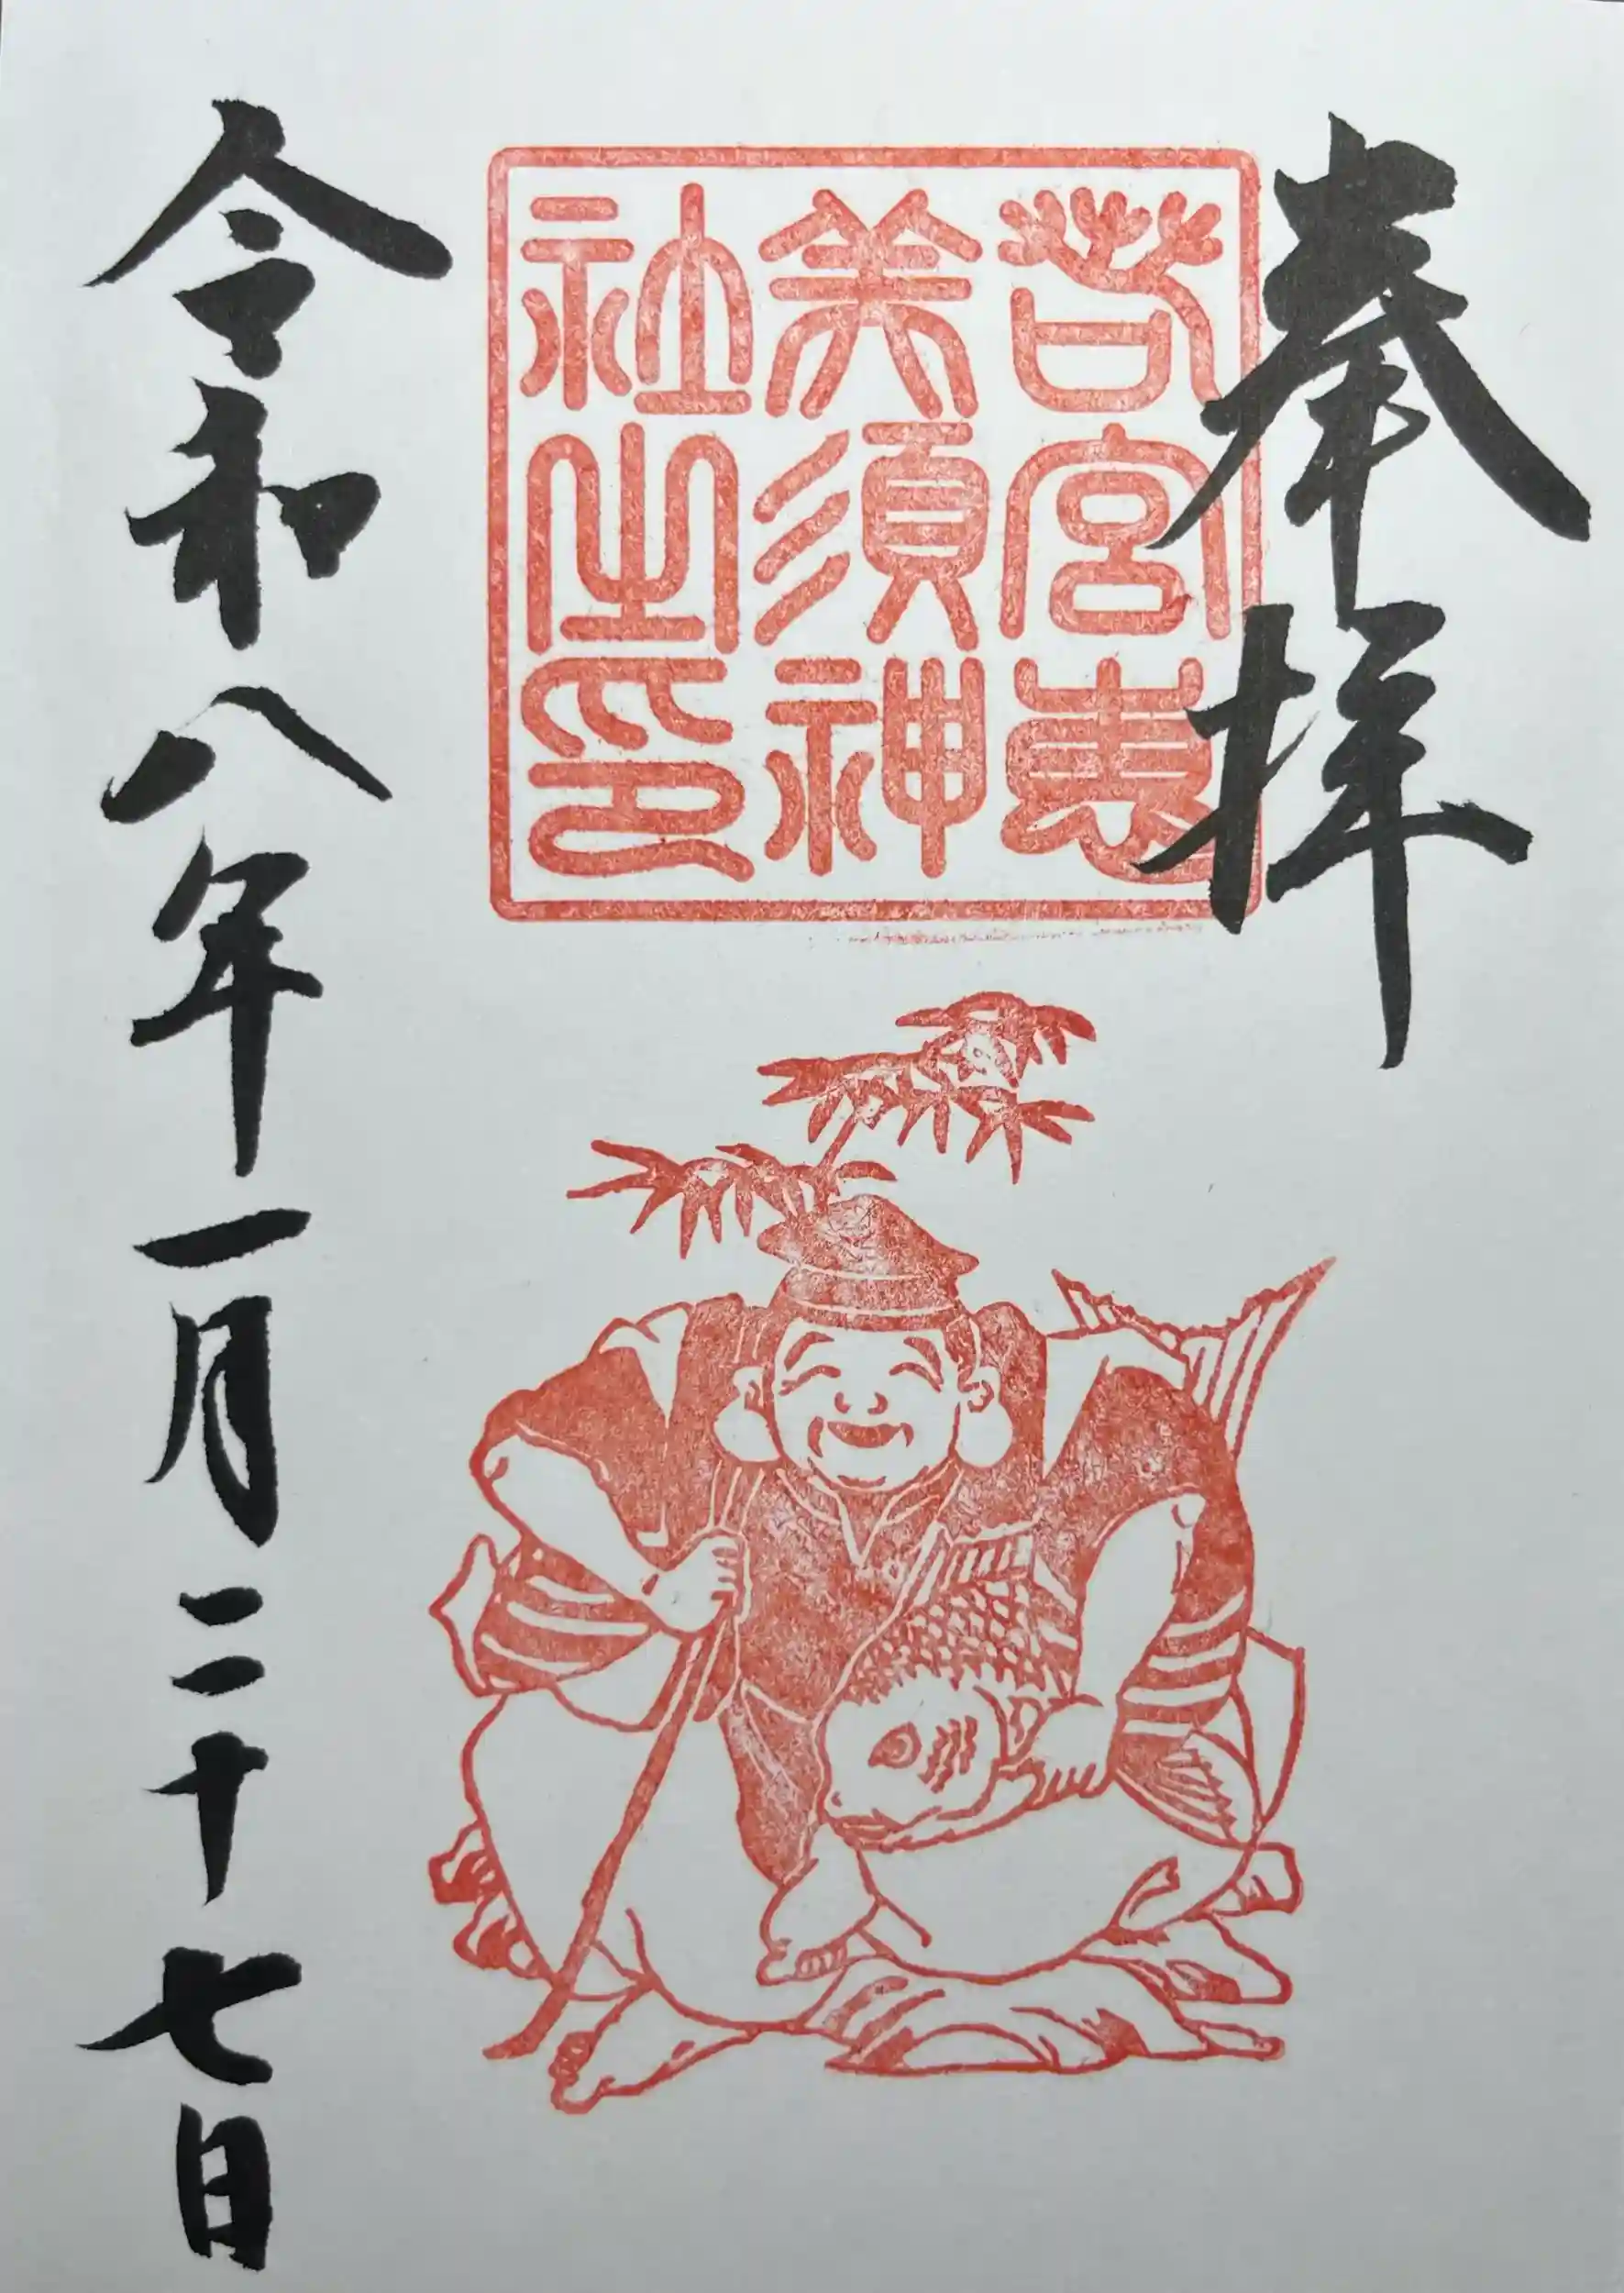 奉拝
若宮恵
美須神
社之印
令和八年一月二十七日